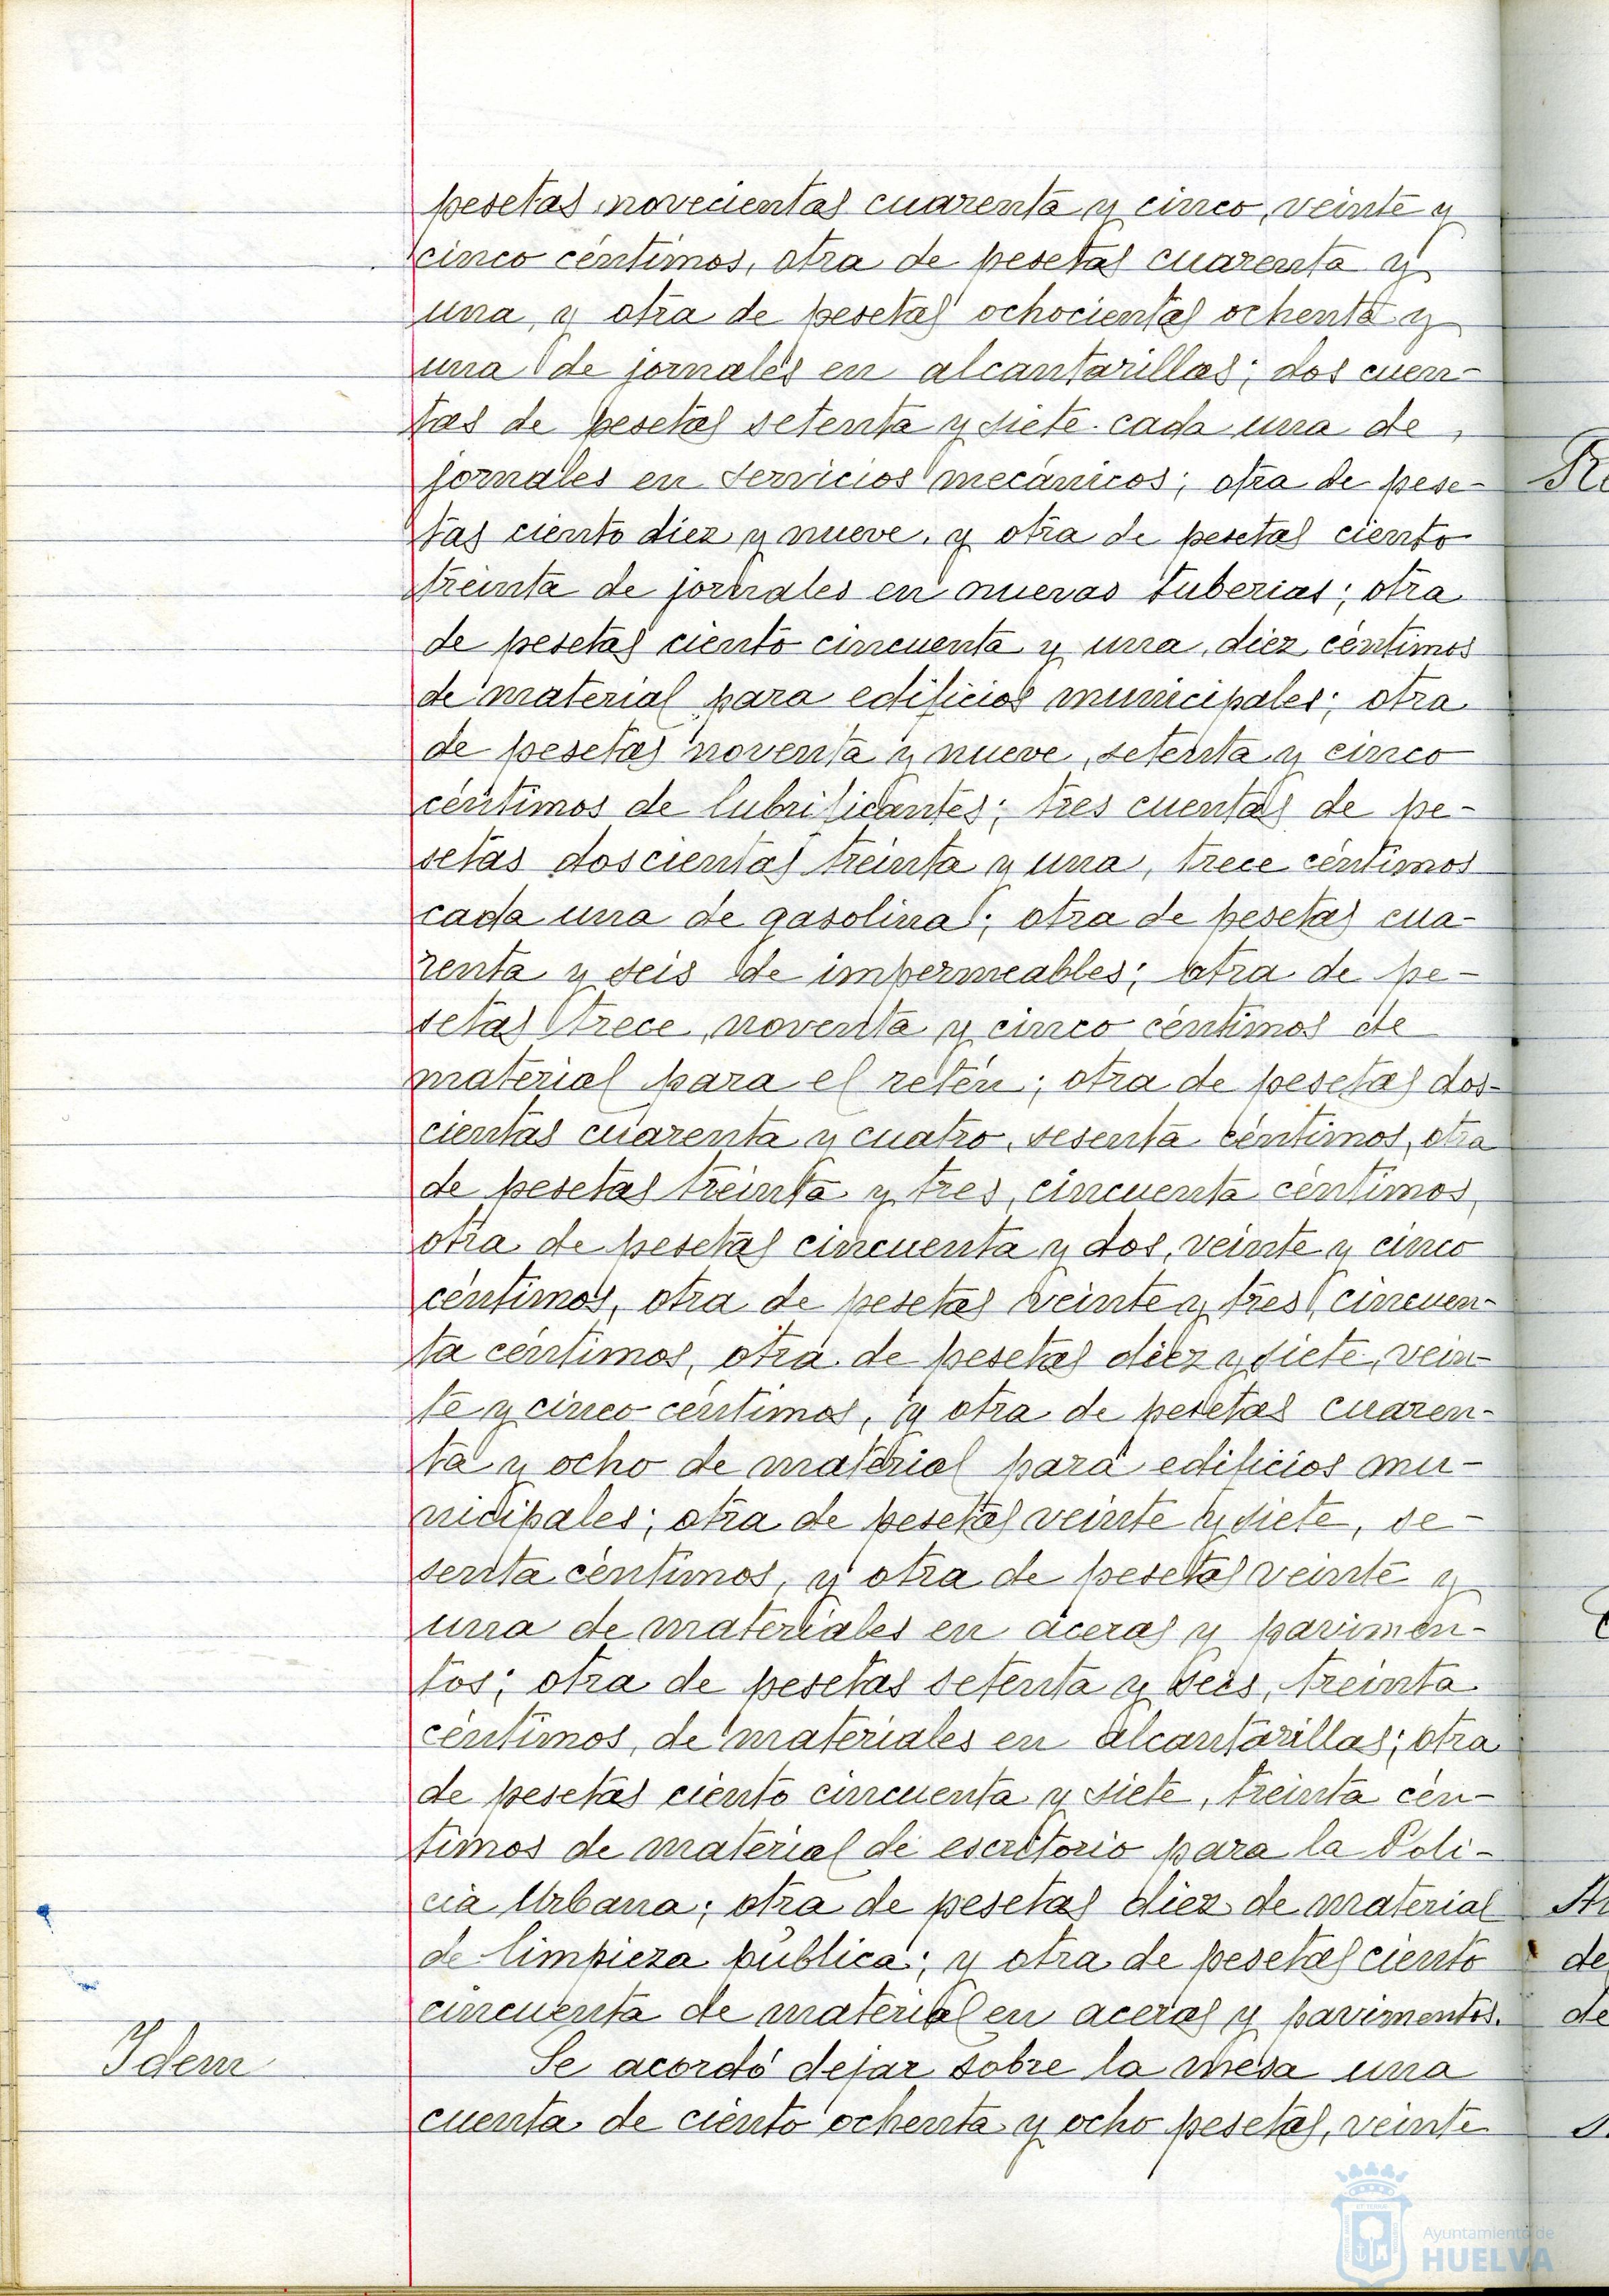 pesetas novecientas cuarenta y cinco, veinte y
cinco céntimos, otra de pesetas cuarenta y
una, y otra de pesetas ochocientas ochenta y
una de jornales en alcantarillas; dos cuen-
tas de pesetas setenta y siete cada una de
jornales en servicios mecánicos; otra de pese-
tas ciento diez y nueve, y otra de pesetas ciento
treinta de jornales en nuevas tuberias; otra
de pesetas ciento cincuenta y una, diez céntimos
de material para edificios municipales; otra
de pesetas noventa y nueve, setenta y cinco
céntimos de lubrificantes; tres cuentas de pe-
setas doscientas treinta y una, trece céntimos
cada una de gasolina; otra de pesetas cua-
renta y seis de impermeables; otra de pe-
setas trece, noventa y cinco céntimos de
material para el retén; otra de pesetas dos-
cientas cuarenta y cuatro, sesenta céntimos, otra
de pesetas treinta y tres, cincuenta céntimos,
otra de pesetas cincuenta y dos, veinte y cinco
céntimos, otra de pesetas veinte y tres, cincuen-
ta céntimos, otra de pesetas diez y siete, vein-
te y cinco céntimos, y otra de pesetas cuaren-
ta y ocho de material para edificios mu-
nicipales; otra de pesetas veinte y siete, se-
senta céntimos, y otra de pesetas veinte y
una de materiales en aceras y pavimen-
tos; otra de pesetas setenta y seis, treinta
céntimos, de materiales en alcantarillas; otra
de pesetas ciento cincuenta y siete, treinta cén-
timos de material de escritorio para la Poli-
cia Urbana; otra de pesetas diez de material
de limpieza pública; y otra de pesetas ciento
cincuenta de material en aceras y pavimentos.
Idem
Se acordó dejar sobre la mesa una
cuenta de ciento ochenta y ocho pesetas, veinte
de
de
Ayuntamiento de
HUELVA